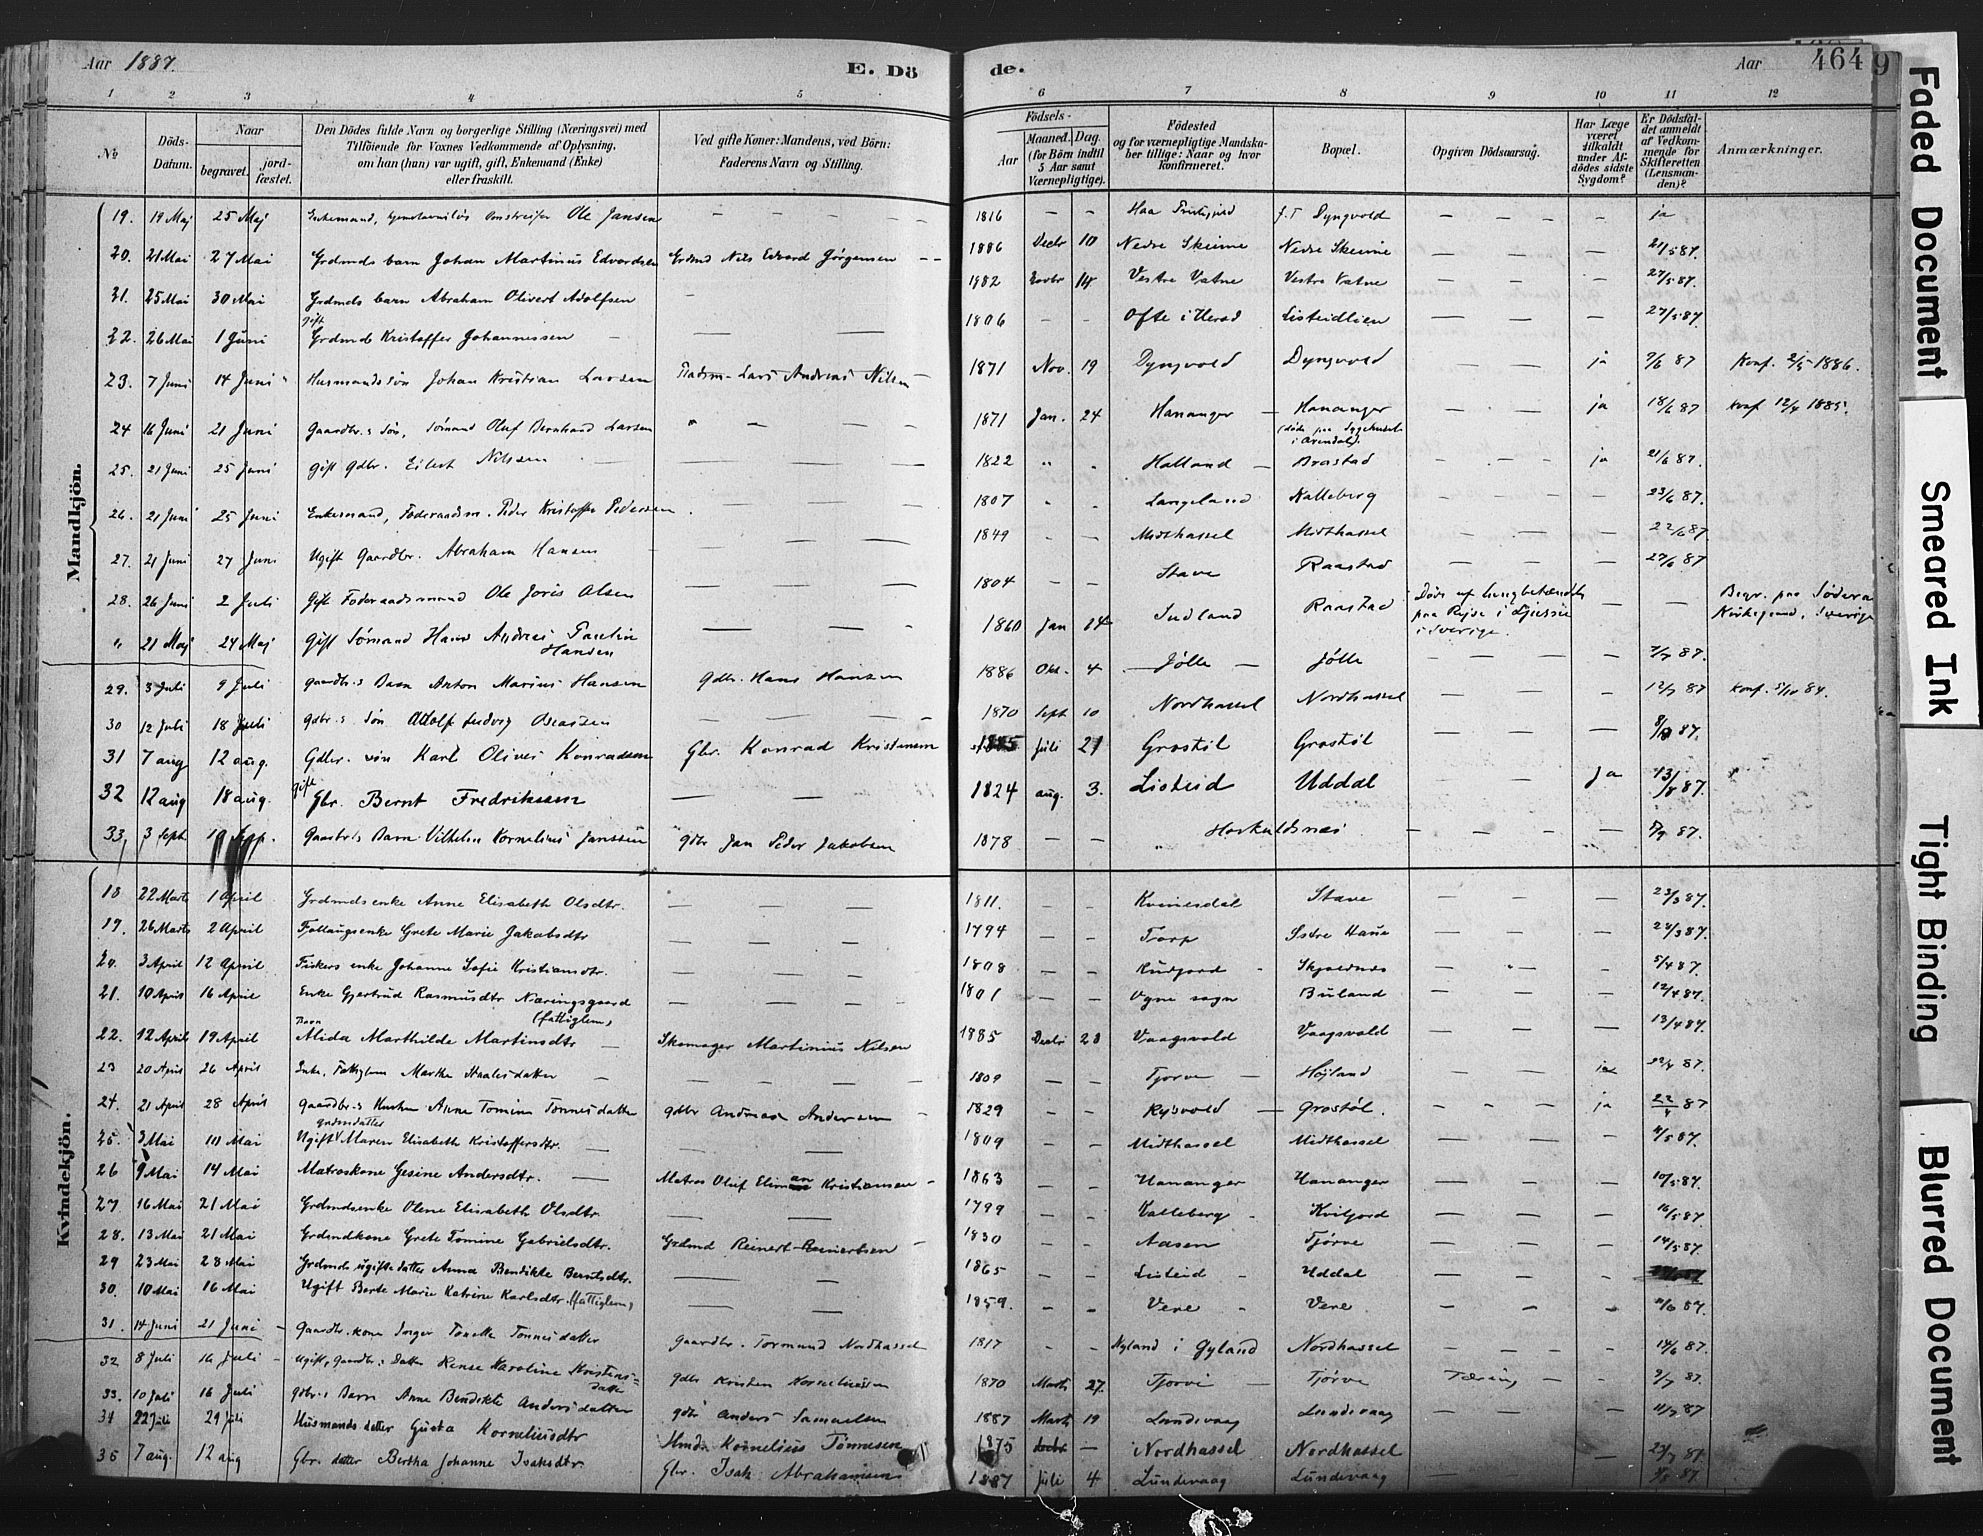 Aar 1887.
E. Dö
de.
Aar
464
9
1 2 3 4 5 6 7 8 9 10 11 12
No
Döds-Datum.
Naar
begravet.
jordfæstet.
Den Dödes fulde Navn og borgerlige Stilling (Næringsvei) med Tilföiende for Voxnes Vedkommende af Oplysning, om han (hun) var ugift, gift, Enkemand (Enke) eller fraskilt.
Ved gifte Koner: Mandens, ved Börn: Faderens Navn og Stilling.
Födsels-
Aar
Maaned. Dag.
(for Börn indtil 5 Aar samt Værnepligtige).
Födested og for værnepligtige Mandskaber tillige: Naar og hvor konfirmeret.
Bopæl.
Opgiven Dödsaarsag.
Har Læge været tilkaldt under Afdödes sidste Sygdom?
Er Dödsfaldet anmeldt af Vedkommende for Skifteretten (Lensmanden)?
Anmærkninger.
Mandkjön.
19. 19 Maj 25 Maj Enkemand, Ole Jansen — — 1816 — — Haa Dyngvold — — — ja
20. 21 Mai 27 Mai Grdmds barn Johan Martinus Edvardsen Grdmd Nils Edvard Jörgensen 1886 Decbr 10 Nedre Skeime Nedre Skeime — — — 21/5 87.
21. 25 Mai 30 Mai Grdmds barn Abraham Olivert Adolfsen — 1882 14 Vestre Vatne Vestre Vatne — — — 27/5 87.
22. 26 Mai 1 Juni gift Grdmd Kristoffer Johannessen — — 1806 — — Ofte i Herad Listeidlien — — — 27/5 87.
23. 7 Juni 14 Juni Husmandssön Johan Kristian Larsen Lars Andreas Nilsen 1871 Nov. 19 Dyngvold Dyngvold — — ja 7/6 87 Konf. 2/5 1886.
24 16 Juni 21 Juni Gaardbr.s Sön, Sömand Oluf Bernhard Larsen " — — 1871 Jan. 24 Hananger — Hananger (döde paa Sygehuset i Arendal). — — ja 18/6 87 Konf. 12/4 1885.
25. 21 Juni 25 Juni gift gdbr. Eilert Nilsen — — 1822 " " Halland — Brastad — — ja 21/6 87.
26. 21 Juni 25 Juni Enkemand, Föderaadsm. Peder Kristoffer Pedersen — — 1807 " Langeland Kalleberg — — — 23/6 87.
27. 21 Juni 27 Juni Ugift Gaardbr. Abraham Hansen — — 1849 — — Midthassel Midthassel — — — 22/6 87.
28. 26 Juni 2 Juli Gift Föderaadsmand Ole Joris Olsen — — 1804 — — Stave Raastad — — — 27/6 87
" 21 Maj 24 Maj Gift Sömand Hans Andreas Paulin Hansen — — 1860 Jan 24 Indland Raastad Döde af lungbetændelse paa Rejse i i Sverige. — — Begr. paa Södera Kirkegaard, Sverige
29. 3 Juli 9 Juli gaardbr.s Barn Anton Marius Hansen Gdbr. Hans Hansen 1886 Okt. 4 — Jölle — Jölle — — — 7/7 87.
30 12 Juli 18 Juli gdbr.s Sön Adolf Ludvig — — 1870 Sept 10 Nordhassel Nordhassel — — — 12/7 87 Konf. 5/10 84.
31 7 aug 12 aug. Gdbr. sön Karl Oliver Konradsen Gbr. Konrad Kristensen 1885 Juli 21 Grostöl Grostöl — — — 8/8 87.
32 12 aug 18 aug. gift Gbr. Bernt Fredriksen — — 1824 aug. 3. Listeid Uddal — — Ja 13/8 87.
33, 3 Sept 10 Sept. Gaardbr.s Barn Vilhelm Kornelius Janssen gdbr Jan Peder Jakobsen 1878 — — " Hoskuldsnæs — — — 5/9 87.
Kvindekjön.
18 22 Marts 1 April Grdmds enke Anne Elisabeth Olsdtr. — — 1811. — — Kvinesdal Stave — — — 23/3 87.
19. 26 Marts 2 April Follaugsenke Grete Marie Jakobsdtr — — 1794 — — Torp Östre Haue — — — 28/3 87.
20. 3 April 12 April Fiskers enke Johanne Sofie Kristiansdtr. — — 1808 — — Rudjord Skjoldnæs — — — 5/4 87.
21. 10 April 16 April Enke Gjertrud Rasmusdtr Næringsgaard (fattiglem) — — 1801 — — Vgne sogn Buland — — — 12/4 87.
22. 12 April 19 April Barn Alida Marthilde Martinsdtr — Skomager Martinius Nilsen 1885 Decbr 23 Vaagsvold Vaagsvold — — — 13/4 87.
23 20 April 26 April Enke. Fattiglem Marthe Staalesdatter — — 1809 — — Tjorve — Höjland — — ja 22/4 87.
24. 21 April 28 April Gaardbr.s Hustru Anne Tomine Tönnesdatter gdbr Andreas Andersen 1829 — — Rysvold — Grostöl. — — ja 22/4 87
25. 3 Mai 10 Mai Ugift grdmdatter Maren Elisabeth Kristoffersdtr. — — 1809 — — Midthassel Midthassel — — — 4/5 87.
26 9 Mai 14 Mai Matroskone Gesine Andersdtr. — Matros Oluf Elimar Kristiansen 1863 — — Hananger Hananger — — — 10/5 87.
27 16 Mai 21 Mai Grdmdsenke Olene Elisabeth Olsdtr. — — 1799 — — Kalleberg Kviljord — — — 16/5 87.
28. 13 Mai 21 Mai Grdmdkone Grete Tomine Gabrielsdtr. Grdmd Reinert Reinertsen 1830 — — Aasen Tjörve — — — 14/5 87.
29 23 Mai 28 Mai Grdmds ugifte datter Anna Bendikte Berntsdtr. — — 1865 — — Listeid Uddal — — —
30. 10 Mai 16 Mai Ugift Berte Marie Katrine Karlsdtr. (fattiglem) — — 1859. — — Vere Vere — — — 11/6 87.
31. 14 Juni 21 Juni Gaardbr. kone Inger Tonette Tönnesdatter gaardbr. Tormund Nordhassel 1817 — — Nyland i Gyland Nordhassel — — — 14/6 87.
32 8 Juli 16 Juli Ugift, Gaardbr.s Datter Rense Karoline Kristensdatter gdbr Kristen Korneliussen 1870 Marts 27. Tjorve — Tjörve Tæring — — 9/7 87.
33. 10 Juli 16 Juli gdbr.s Barn Anne Bendikte Andersdatter gdbr Anders Samuelsen 1887 Marts 19 Lundevaag Lundevaag — — — 11/7 87
34 22 Juli 29 Juli Husmands datter Gusta Korneliusdtr Hmd. Kornelius Tönnesen 1875 — Nordhassel Nordhassel — 23/7 87.
35 7 aug. 12 aug Gbr. datter Bertha Johanne Isaksdtr. Gbr. Isak Abrahamsen 1887 Juli 4 Lundevaag Lundevaag 8/8 87.
Faded Document
Smeared Ink
Tight Binding
Blurred Document